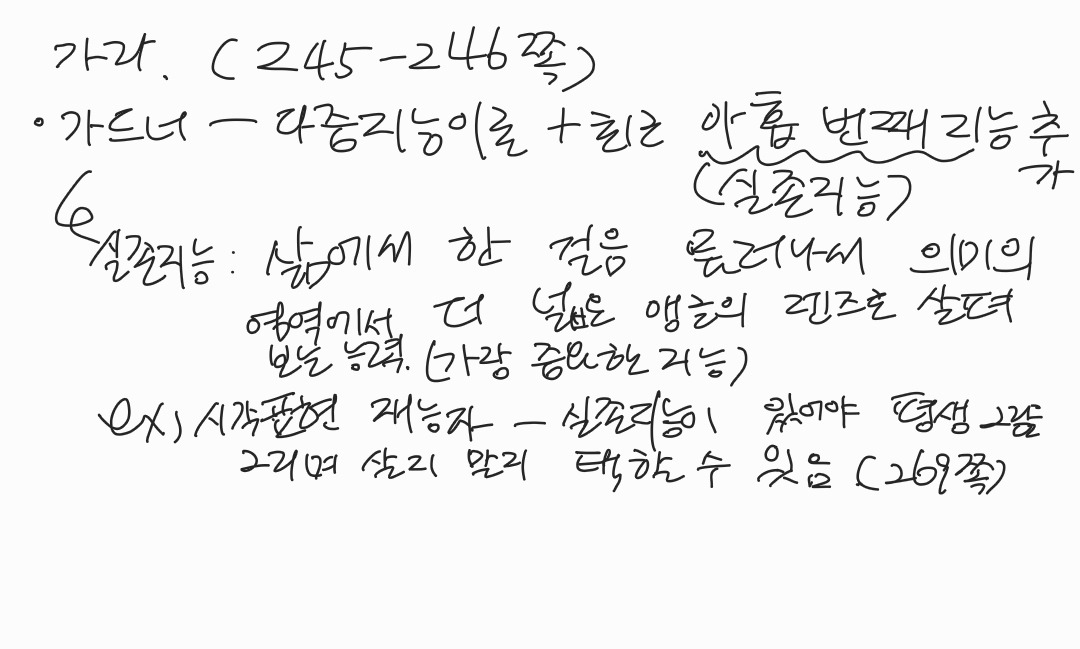 가라. (245-246쪽)
• 가드너 - 다중지능이론 + 최근 아홉 번째 지능 추가
(실존지능)
실존지능: 삶에서 한 걸음 물러나서 의미의
영역에서 더 넓은 앵글의 렌즈로 살펴
보는 능력. (가장 중요한 지능)
ex) 시각표현 재능자 - 실존지능이 있어야 평생 그림
그리며 살지 말지 택할 수 있음 (269쪽)